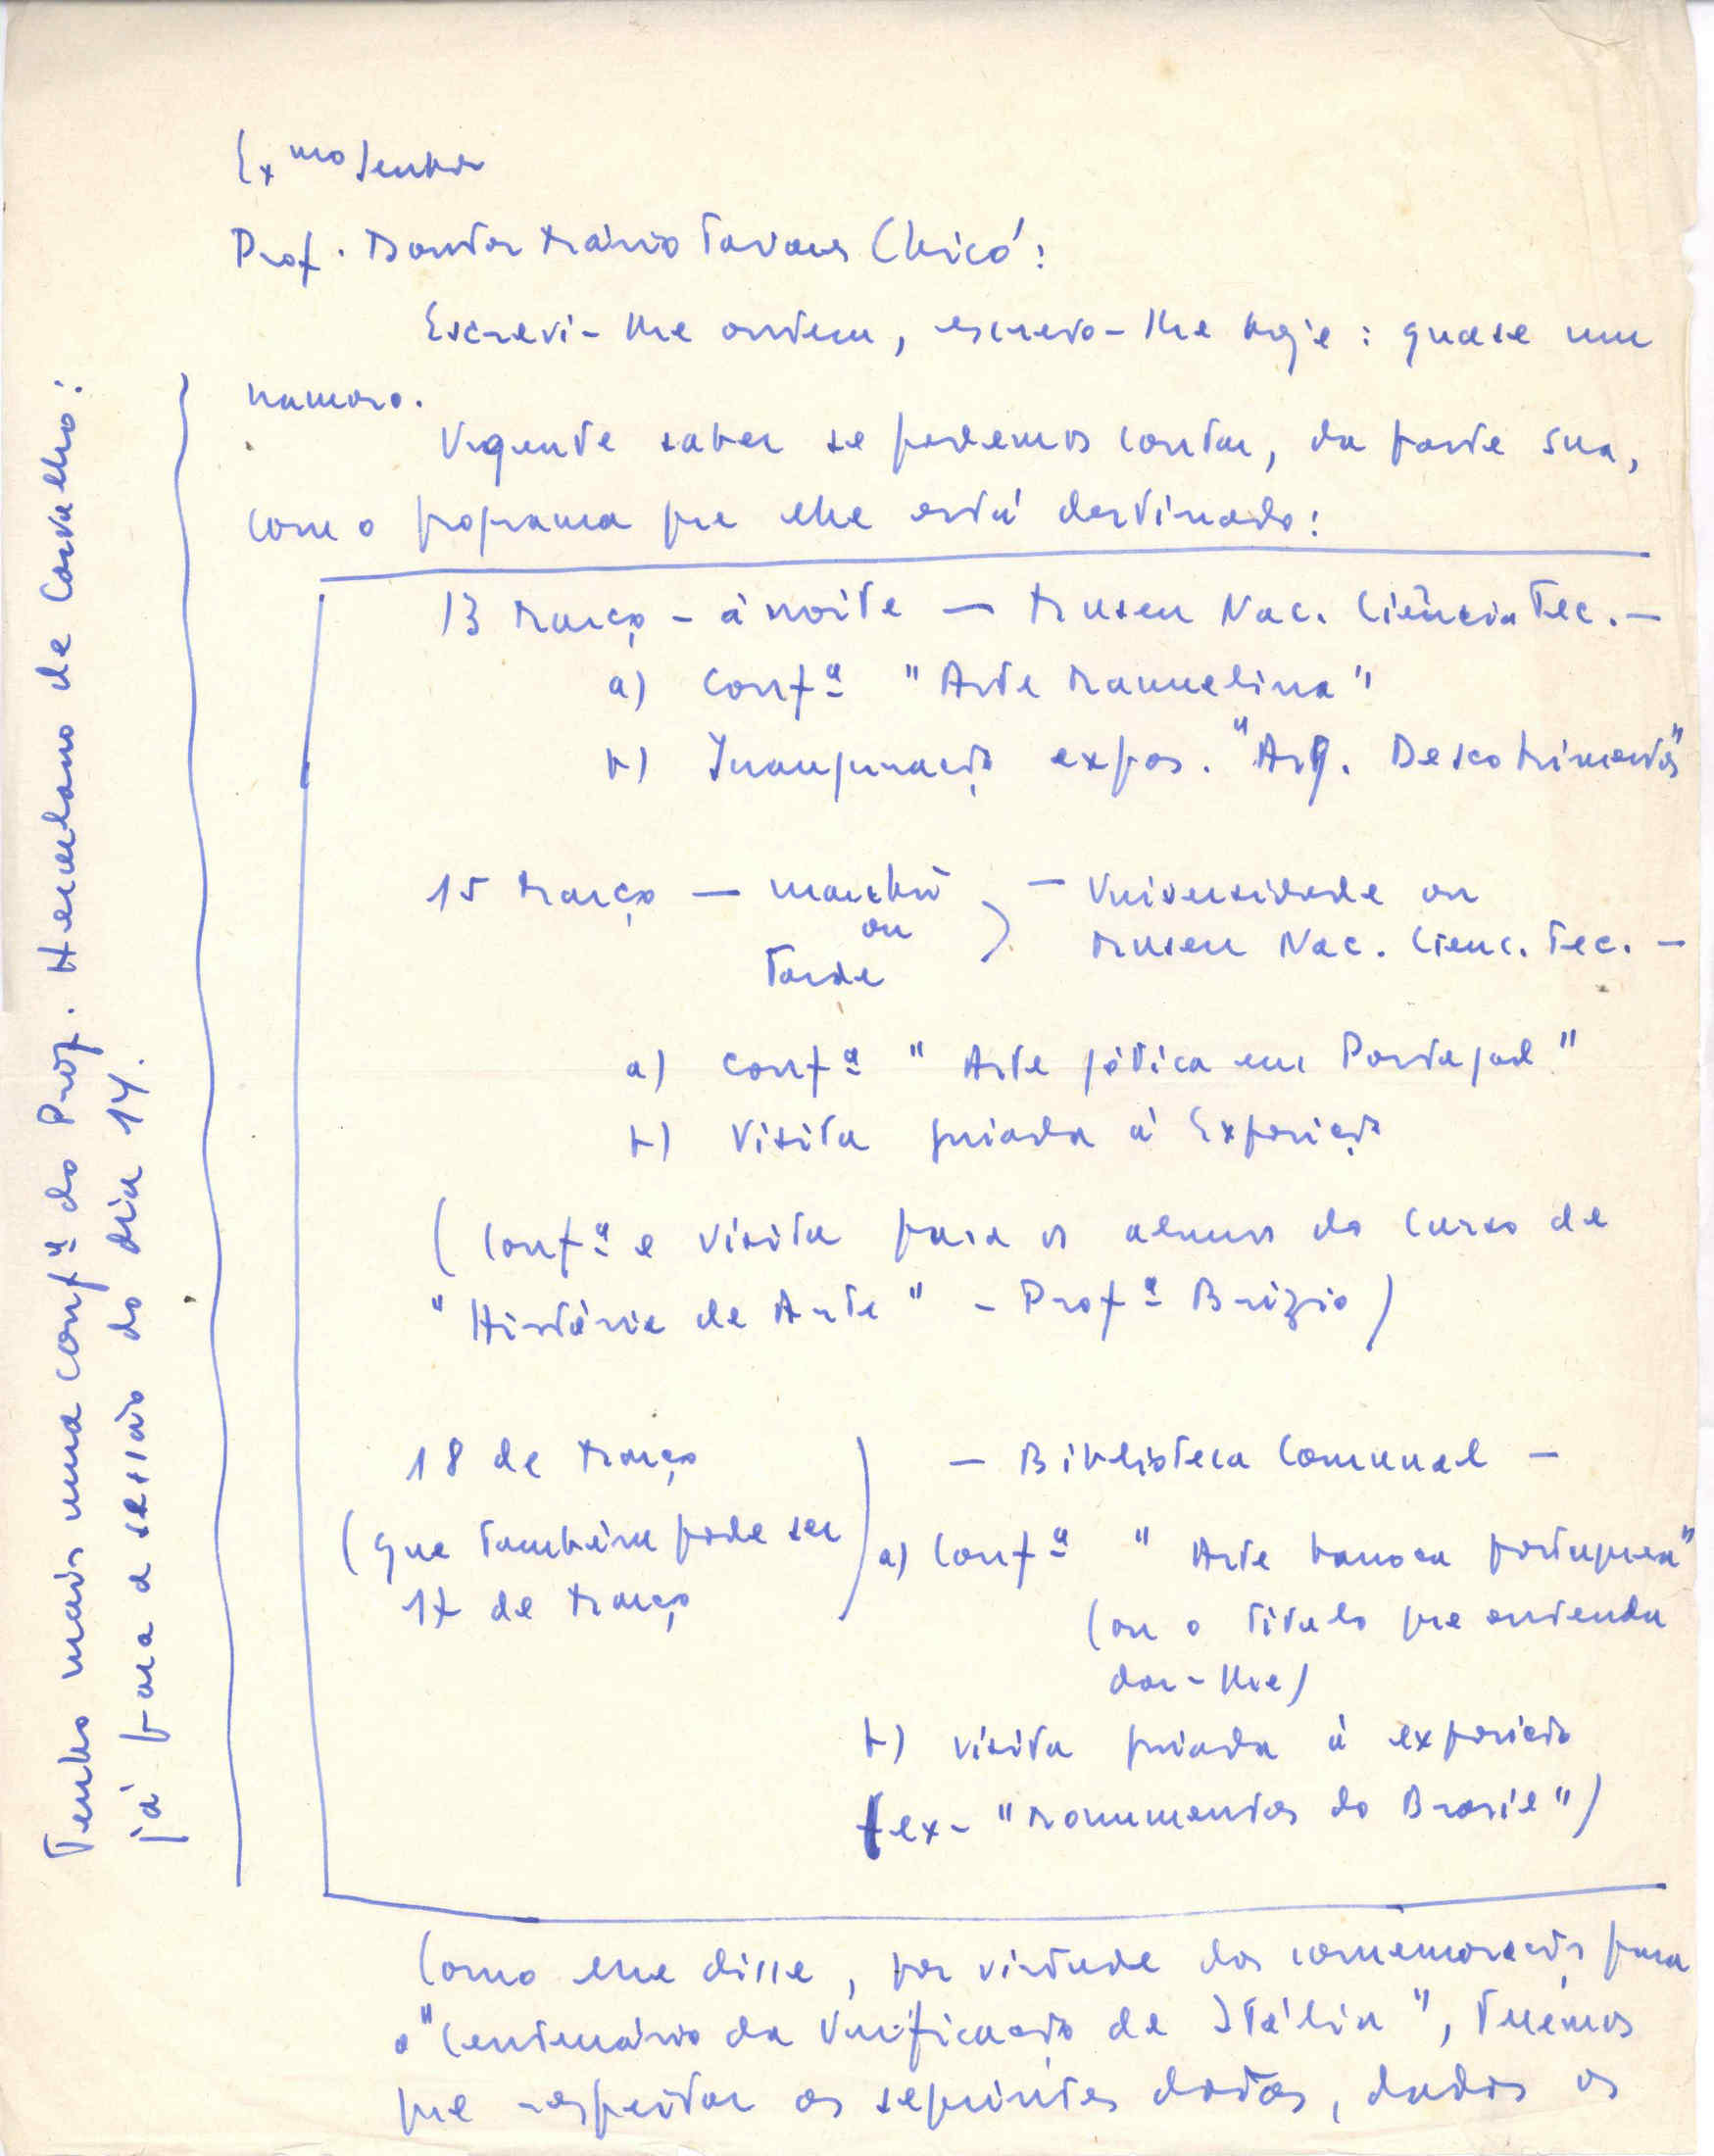 Exmo Senhor
Prof. Doutor Mário Tavares Chicó:
Escrevi-lhe ontem, escrevo-lhe hoje: quase um
namoro.
Urgente saber se podemos contar, da parte sua,
com o programa que lhe está destinado:
13 Março - à noite — Museu Nac. Ciência Tec. —
a) Confª "Arte Manuelina"
b) Inauguração expos. "Arq. Descobrimentos"
15 Março — manhã
ou
Tarde
— Universidade ou
Museu Nac. Cienc. Tec. —
a) Confª "Arte gótica em Portugal"
b) Visita guiada à Exposição
(Confª e visita para os alunos do Curso de
"História de Arte" - Profª Brizio)
18 de Março
(que também pode ser
17 de Março)
— Biblioteca Comunal —
a) Confª "Arte barroca portuguesa"
(ou o título que entenda
dar-lhe)
b) visita guiada à exposição
(ex- "Monumentos do Brasil")
Como lhe disse, por virtude das comemorações para
o "Centenário da Unificação de Itália", temos
que respeitar as seguintes datas, dados os
Tenho mais uma confª do Prof. Herculano de Carvalho:
já para a sessão do dia 14.